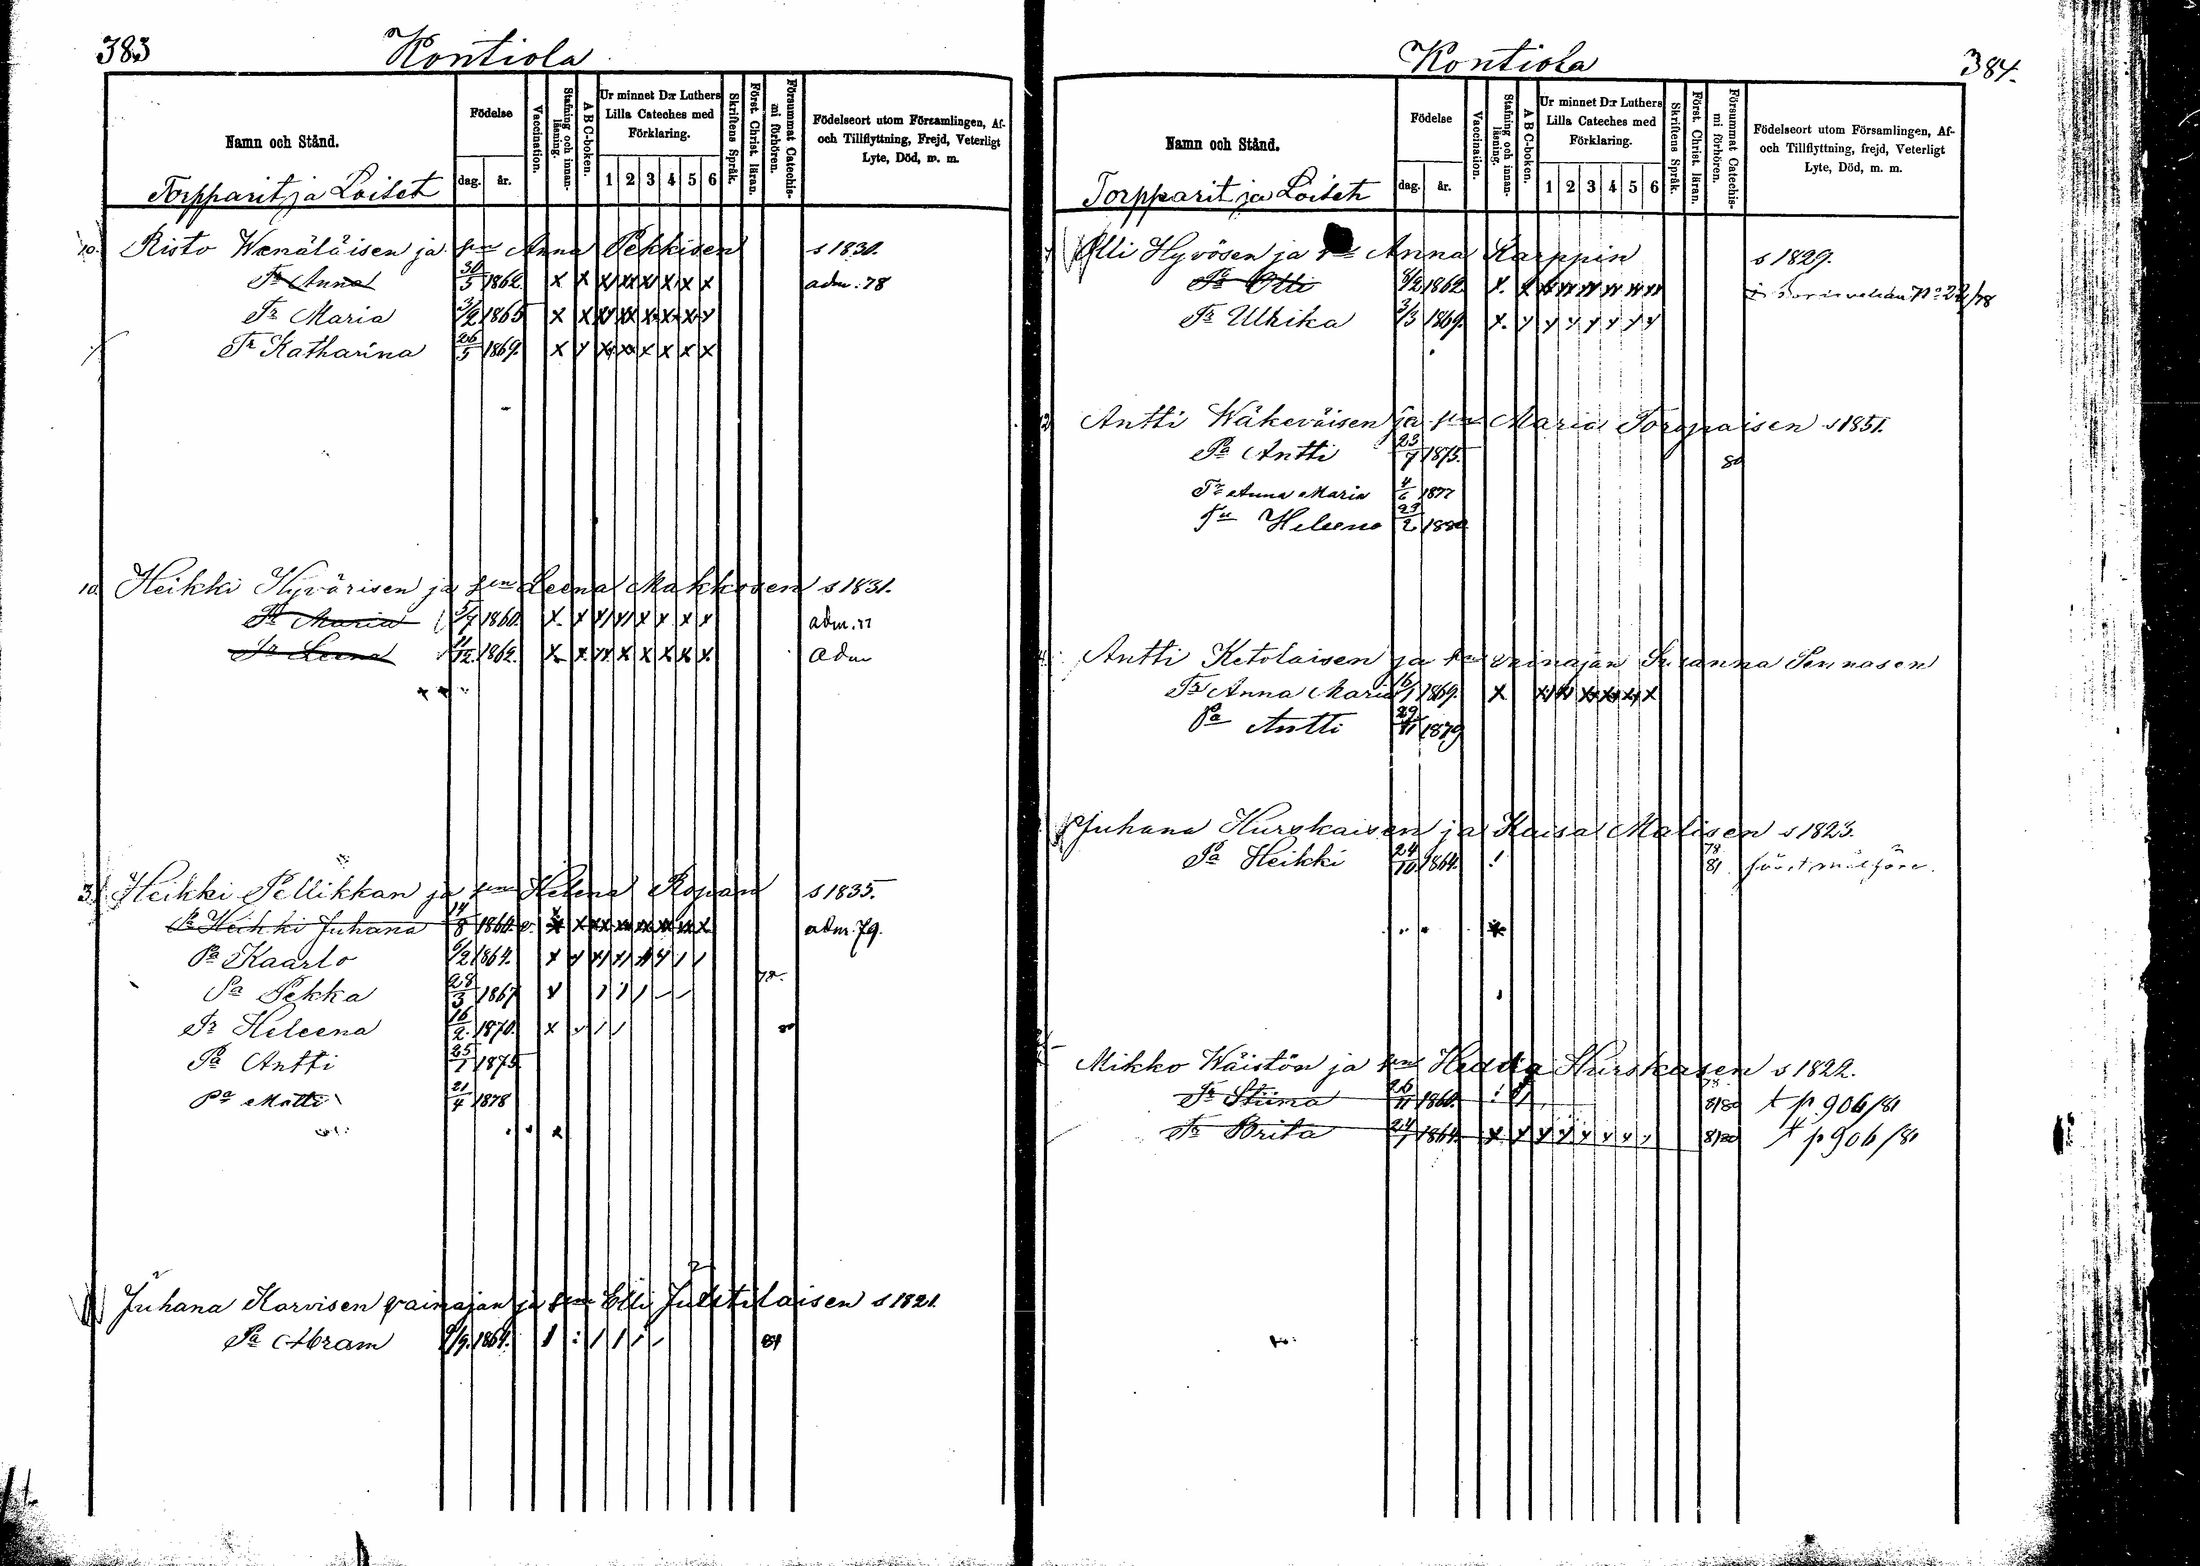 383 Kontiola
Namn och Stånd.
Födelse
dag. år.
Vaccination.
Stafning och innan-läsning.
A B C-boken.
Ur minnet D:r Luthers Lilla Cateches med Förklaring.
1 2 3 4 5 6
Skriftens Språk.
Först. Christ. läran.
Försummat Catechis-mi förhören.
Födelseort utom Församlingen, Af- och Tillflyttning, Frejd, Veterligt Lyte, Död, m. m.
Torpparit ja Loiset
10. Risto Wenäläisen ja Anna Pekkisen s 1830.
Tr Anna 30/5 1862. x x x x x x x x adm. 78
Tr Maria 1865 x x x x x x x
Tr Katharina 26/5 1869. x y x x x x x x
10. Heikki Hyvärisen ja Leena Makkosen s 1831.
Tr Maria 5/7 1860. x x x x x x adm. 77
Tr Leena 11/12 1862. x x x x x x x x adm
3. Heikki Pellikkan ja Helena Ropan s 1835.
Pa Heikki Juhana 14/8 1860. v. x x x x x x x adm. 79.
Pa Kaarlo 6/2 1864.
Pa Pekka 28/3 1867 78
Tr Heleena 16/2 1870. 80
Pa Antti 25/7 1875
Pa Matti 21/4 1878
Juhana Karvisen vainajan ja Elli Juutilaisen s 1821.
Pa Abram 9/9. 1864. 81
Kontiola 384.
Namn och Stånd.
Födelse
dag. år.
Vaccination.
Stafning och innan-läsning.
A B C-boken.
Ur minnet D:r Luthers Lilla Cateches med Förklaring.
1 2 3 4 5 6
Skriftens Språk.
Först. Christ. läran.
Försummat Catechis-mi förhören.
Födelseort utom Församlingen, Af- och Tillflyttning, frejd, Veterligt Lyte, Död, m. m.
Torpparit ja Loiset
Olli Hyvösen ja Anna Karppin s 1829.
Pa Olli 8/2 1862
Tr Ulrika 2/3 1869.
Antti Wäkeväisen ja Maria Toropaisen s 1851.
Pa Antti 23/7 1875. 80
Tr Anna Maria 4/6 1877
Heleena 29/2 1880
Antti Ketolaisen ja vainajan Susanna Pennasen
Tr Anna Maria 1869. x
Pa Antti 29/11 1879
Juhana Hurskaisen ja Kaisa Malisen s 1823.
Pa Heikki 24/10. 1864. 78 81
Mikko Wäistön ja Hedda Hurskasen s 1822.
Tr Stiina 26/11 1860. 81 80 t p 906/81
Tr Brita 24/1 1864. 81 80 t p 906/81